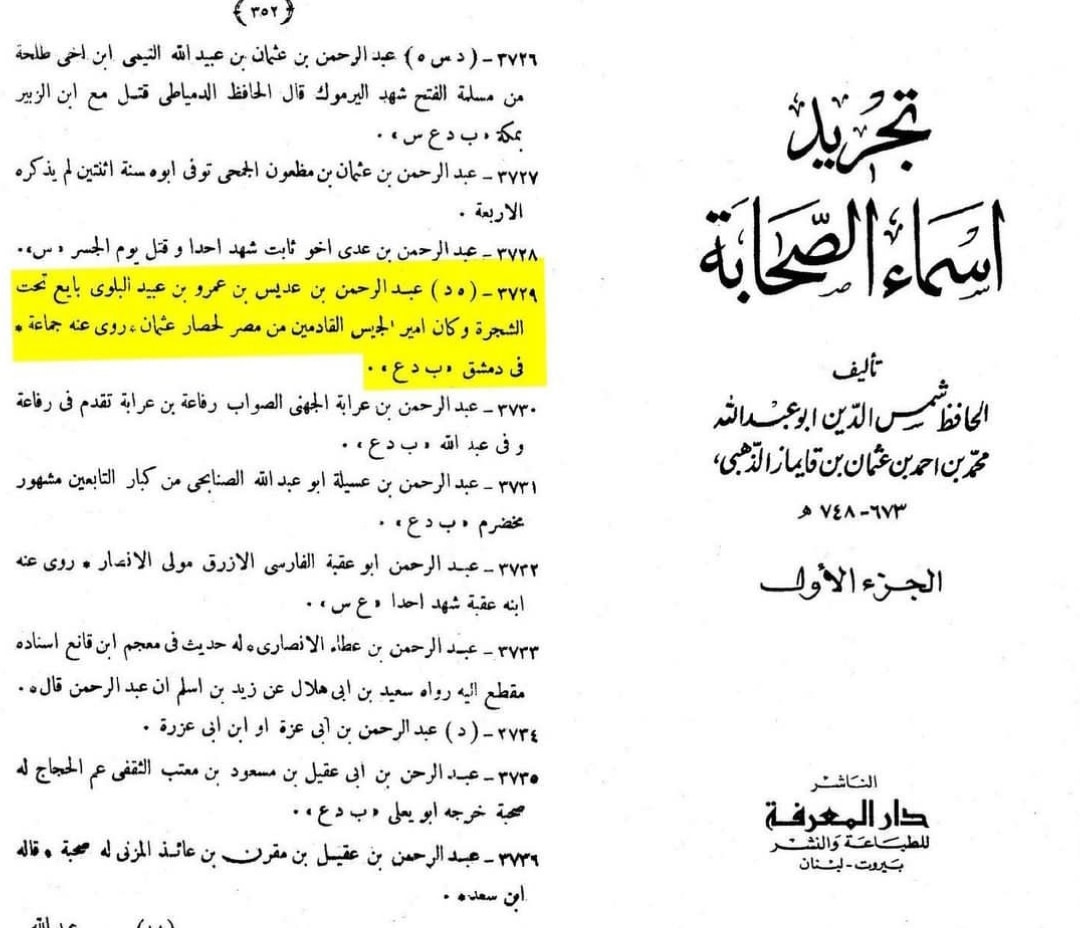 تجريد
اسماء الصحابة
تأليف
الحافظ شمس الدين ابو عبد الله
محمد بن احمد بن عثمان بن قايماز الذهبي،
٦٧٣-٧٤٨ ه
الجزء الأول
الناشر
دار المعرفة
للطباعة والنشر
بيروت-لبنان
﴿٣٥٢﴾
٣٧٢٦-(د س ه) عبد الرحمن بن عثمان بن عبيد الله التيمى ابن اخى طلحة
من مسلمة الفتح شهد اليرموك قال الحافظ الدمياطى قتل مع ابن الزبير
بمكة «ب د ع س».
٣٧٢٧-عبد الرحمن بن عثمان بن مظعون الجمحى توفى ابوه سنة اثنتين لم يذكره
الاربعة .
٣٧٢٨-عبد الرحمن بن عدى اخو ثابت شهد احدا و قتل يوم الجسر «س».
٣٧٢٩-(ه د) عبد الرحمن بن عديس بن عمرو بن عبيد البلوى بايع تحت
الشجرة وكان امير الجيس القادمين من مصر لحصار عثمان، روى عنه جماعة *
فى دمشق «ب د ع».
٣٧٣٠-عبد الرحمن بن عرابة الجهنى الصواب رفاعة بن عرابة تقدم فى رفاعة
و فى عبد الله «ب د ع».
٣٧٣١-عبد الرحمن بن عسيلة ابو عبد الله الصنابحى من كبار التابعين مشهور
مخضرم «ب د ع».
٣٧٣٢-عبد الرحمن ابو عقبة الفارسى الازرق مولى الانصار * روى عنه
ابنه عقبة شهد احدا «ع س».
٣٧٣٣-عبد الرحمن بن عطاء الانصارى، له حديث فى معجم ابن قانع اسناده
مقطع اليه رواه سعيد بن ابى هلال عن زيد بن اسلم ان عبد الرحمن قال*.
٣٧٣٤-(د) عبد الرحمن بن ابى عزة او ابن ابى عزرة .
٣٧٣٥-عبد الرحن بن ابى عقيل بن مسعود بن معتب الثقفى عم الحجاج له
صحبة خرجه ابو يعلى «ب د ع».
٣٧٣٦-عبد الرحمن بن عقيل بن مقرن بن عائذ المزنى له صحبة * قاله
ابن سعد*.